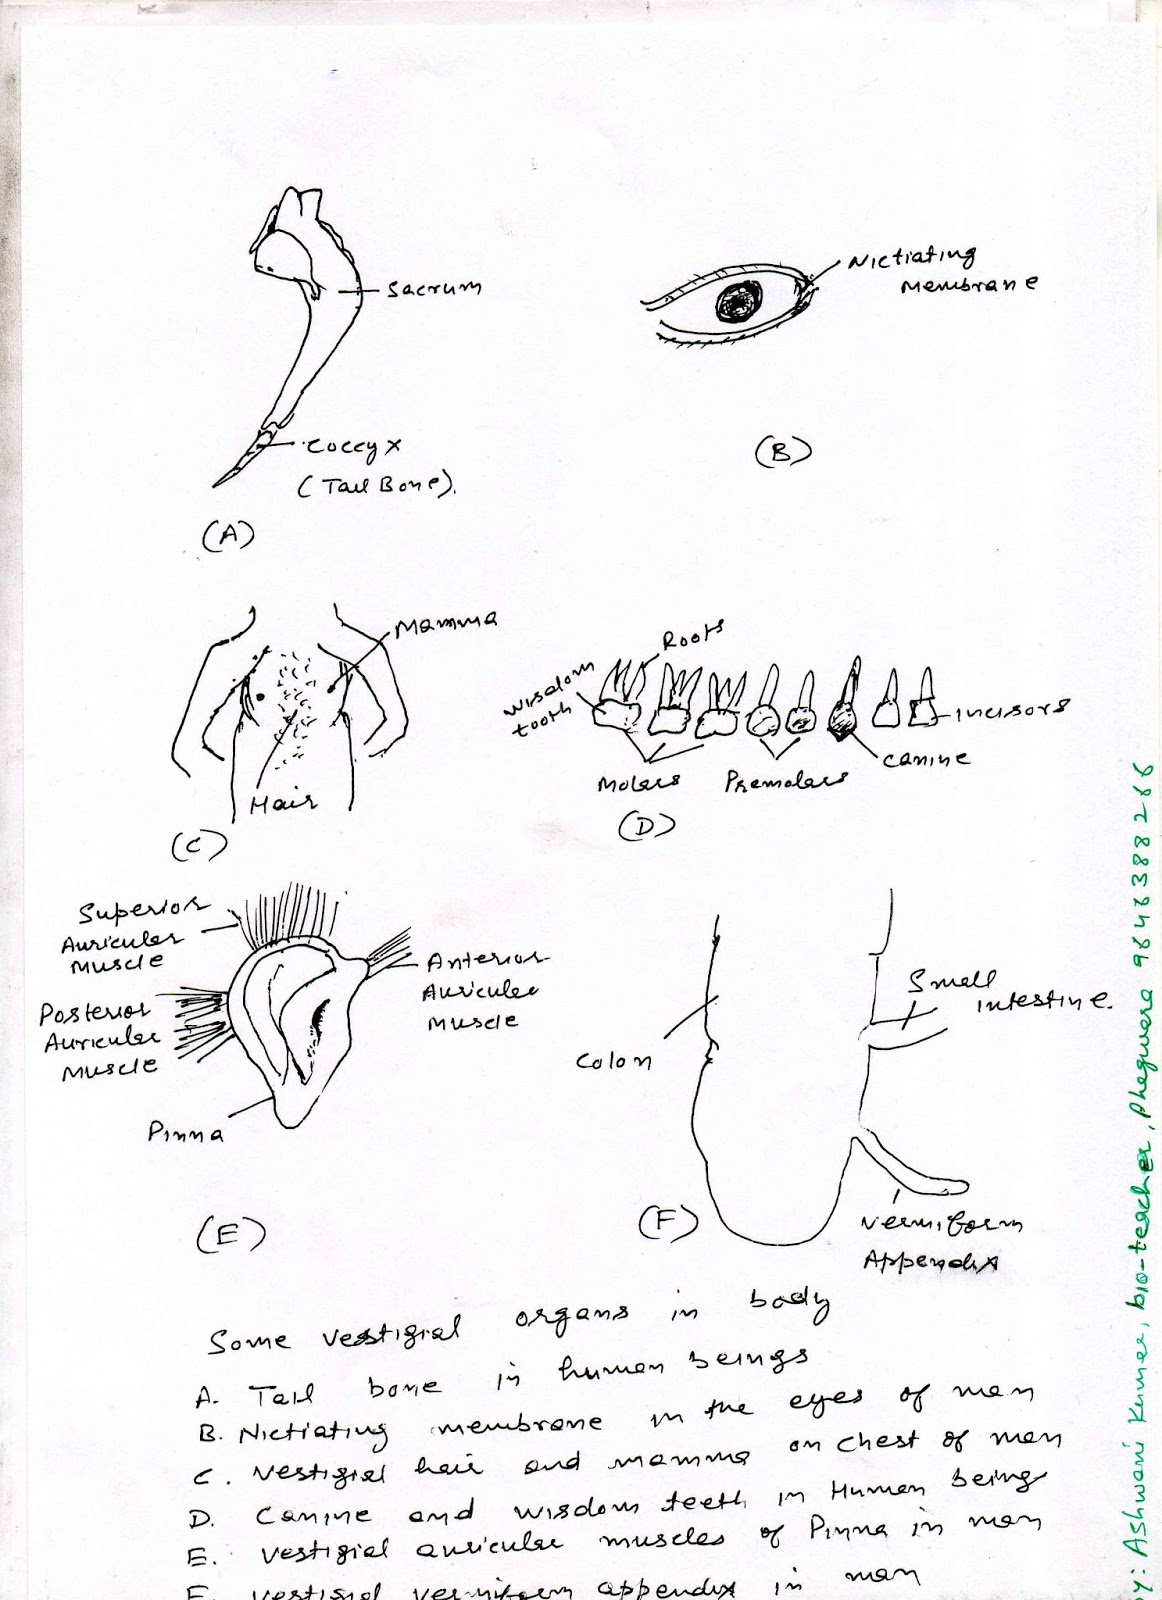 Sacrum
Coccyx
(Tail Bone).
(A)
Nictiating
Membrane
(B)
Mamma
Hair
(C)
Roots
Wisdom
tooth
Incisors
Canine
Molars
Premolars
(D)
Superior
Auricular
Muscle
Anterior
Auricular
Muscle
Posterior
Auricular
Muscle
Pinna
(E)
Small
intestine.
Colon
Vermiform
Appendix
(F)
Some vestigial organs in body
A. Tail bone in human beings
B. Nictiating membrane in the eyes of man
C. Vestigial hair and mamma on chest of man
D. Canine and wisdom teeth in Human being
E. Vestigial auricular muscles of Pinna in man
F. Vestigial vermiform appendix in man
y: Ashwani Kumar, bio-teacher, Phagwara